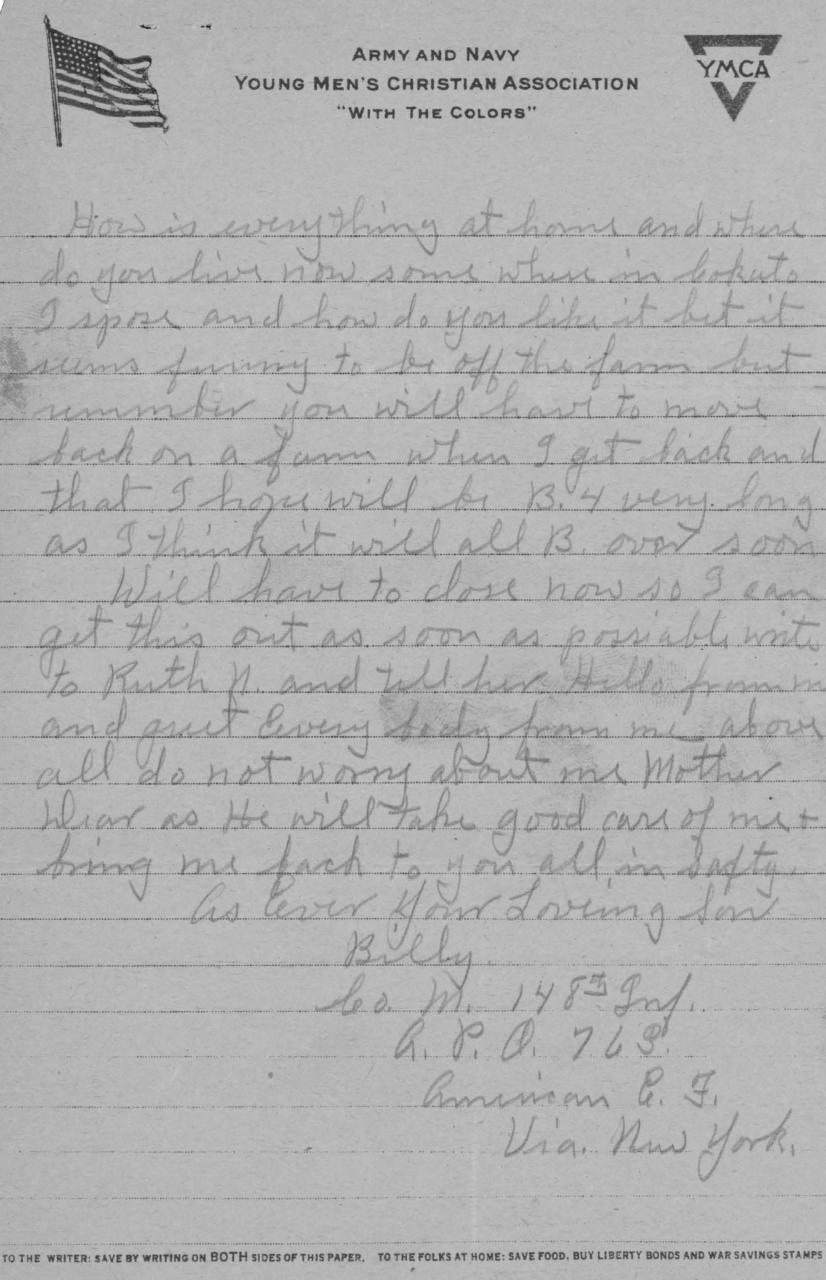 ARMY AND NAVY
YOUNG MEN'S CHRISTIAN ASSOCIATION
"WITH THE COLORS"
YMCA
How is everything at home and where
do you live now some where in Cokato
I spose and how do you like it bet it
seems funny to be off the farm but
remember you will have to move
back on a farm when I get back and
that I hope will be B. 4 very long
as I think it will all B. over soon
Will have to close now so I can
get this out as soon as possiable write
to Ruth N. and tell her Hello from m
and greet Every body from me above
all do not worry about me Mother
Dear as He will take good care of me +
bring me back to you all in safty.
As Ever Your Loveing Son
Billy.
Co. M. 148th Inf.
A. P. O. 763.
American E. F.
Via. New York.
TO THE WRITER: SAVE BY WRITING ON BOTH SIDES OF THIS PAPER. TO THE FOLKS AT HOME: SAVE FOOD, BUY LIBERTY BONDS AND WAR SAVINGS STAMPS